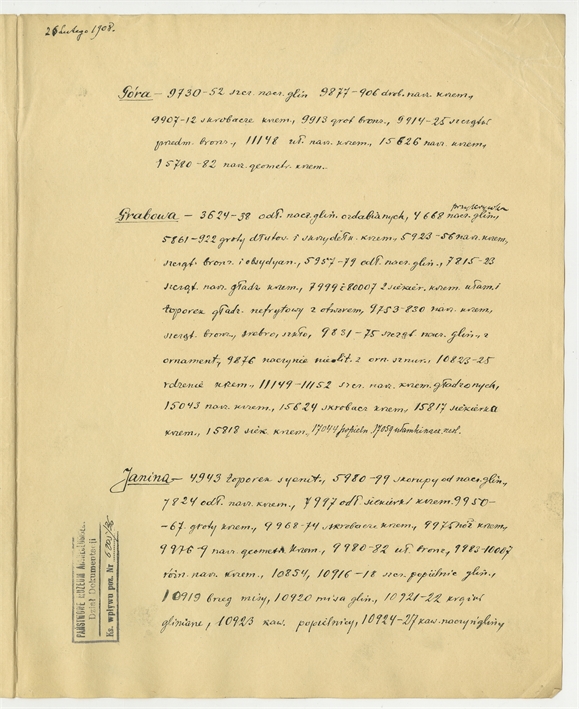 26 Lutego 1908.
Góra – 9730-52 szcz. nacz. glin 9877-906 drob. narz. krzem.,
9907-12 skrobacze krzem., 9913 grot bronz., 9914-25 szczątki
przedm. bronz., 11148 uł. narz. krzem., 15626 narz. krzem.,
15780-82 narz. geometr. krzem.
Grabowa – 3624-38 odł. nacz. glin. ozdabianych, 4668 nacz. glin.,
5861-922 groty dłutow. i skrzydełk. krzem., 5923-56 narz. krzem.,
szcząt. bronz. i obsydyan., 5957-79 odł. nacz. glin., 7815-23
szcząt. narz. gładz. krzem., 7999 i 80007 2 siekier. krzem. ułam. i
toporek gładz. nefrytowy z otworem, 9753-830 narz. krzem.,
szcząt. bronz., srebro, szkło, 9831-75 szcząt. nacz. glin., z
ornament., 9876 naczynie z orn. sznur., 10823-25
rdzenie krzem., 11149-11152 szcz. narz. krzem. gładzonych,
15043 narz. krzem., 15624 skrobacz krzem., 15817 siekierka
krzem., 15818 siek. krzem., 17044 popieln. 17059
Janina – 4943 toporek syenit., 5980-99 skorupy od nacz. glin.,
7824 odł. narz. krzem., 7997 odł. siekierki krzem. 9950-
-67 groty krzem., 9968-74 skrobacze krzem., 9975 nóż krzem.,
9976-9 narz. geometr. krzem., 9980-82 uł. bronz., 9983-10067
różn. narz. krzem., 10854, 10916-18 szcz. popielnic glin.,
10919 brzeg misy, 10920 misa glin., 10921-22 krążki
gliniane, 10923 kaw. popielnicy, 10924-27 kaw. naczyń gliny
PAŃSTWOWE MUZEUM
Dział Dokumentacji
Ks. wpływu poz. Nr